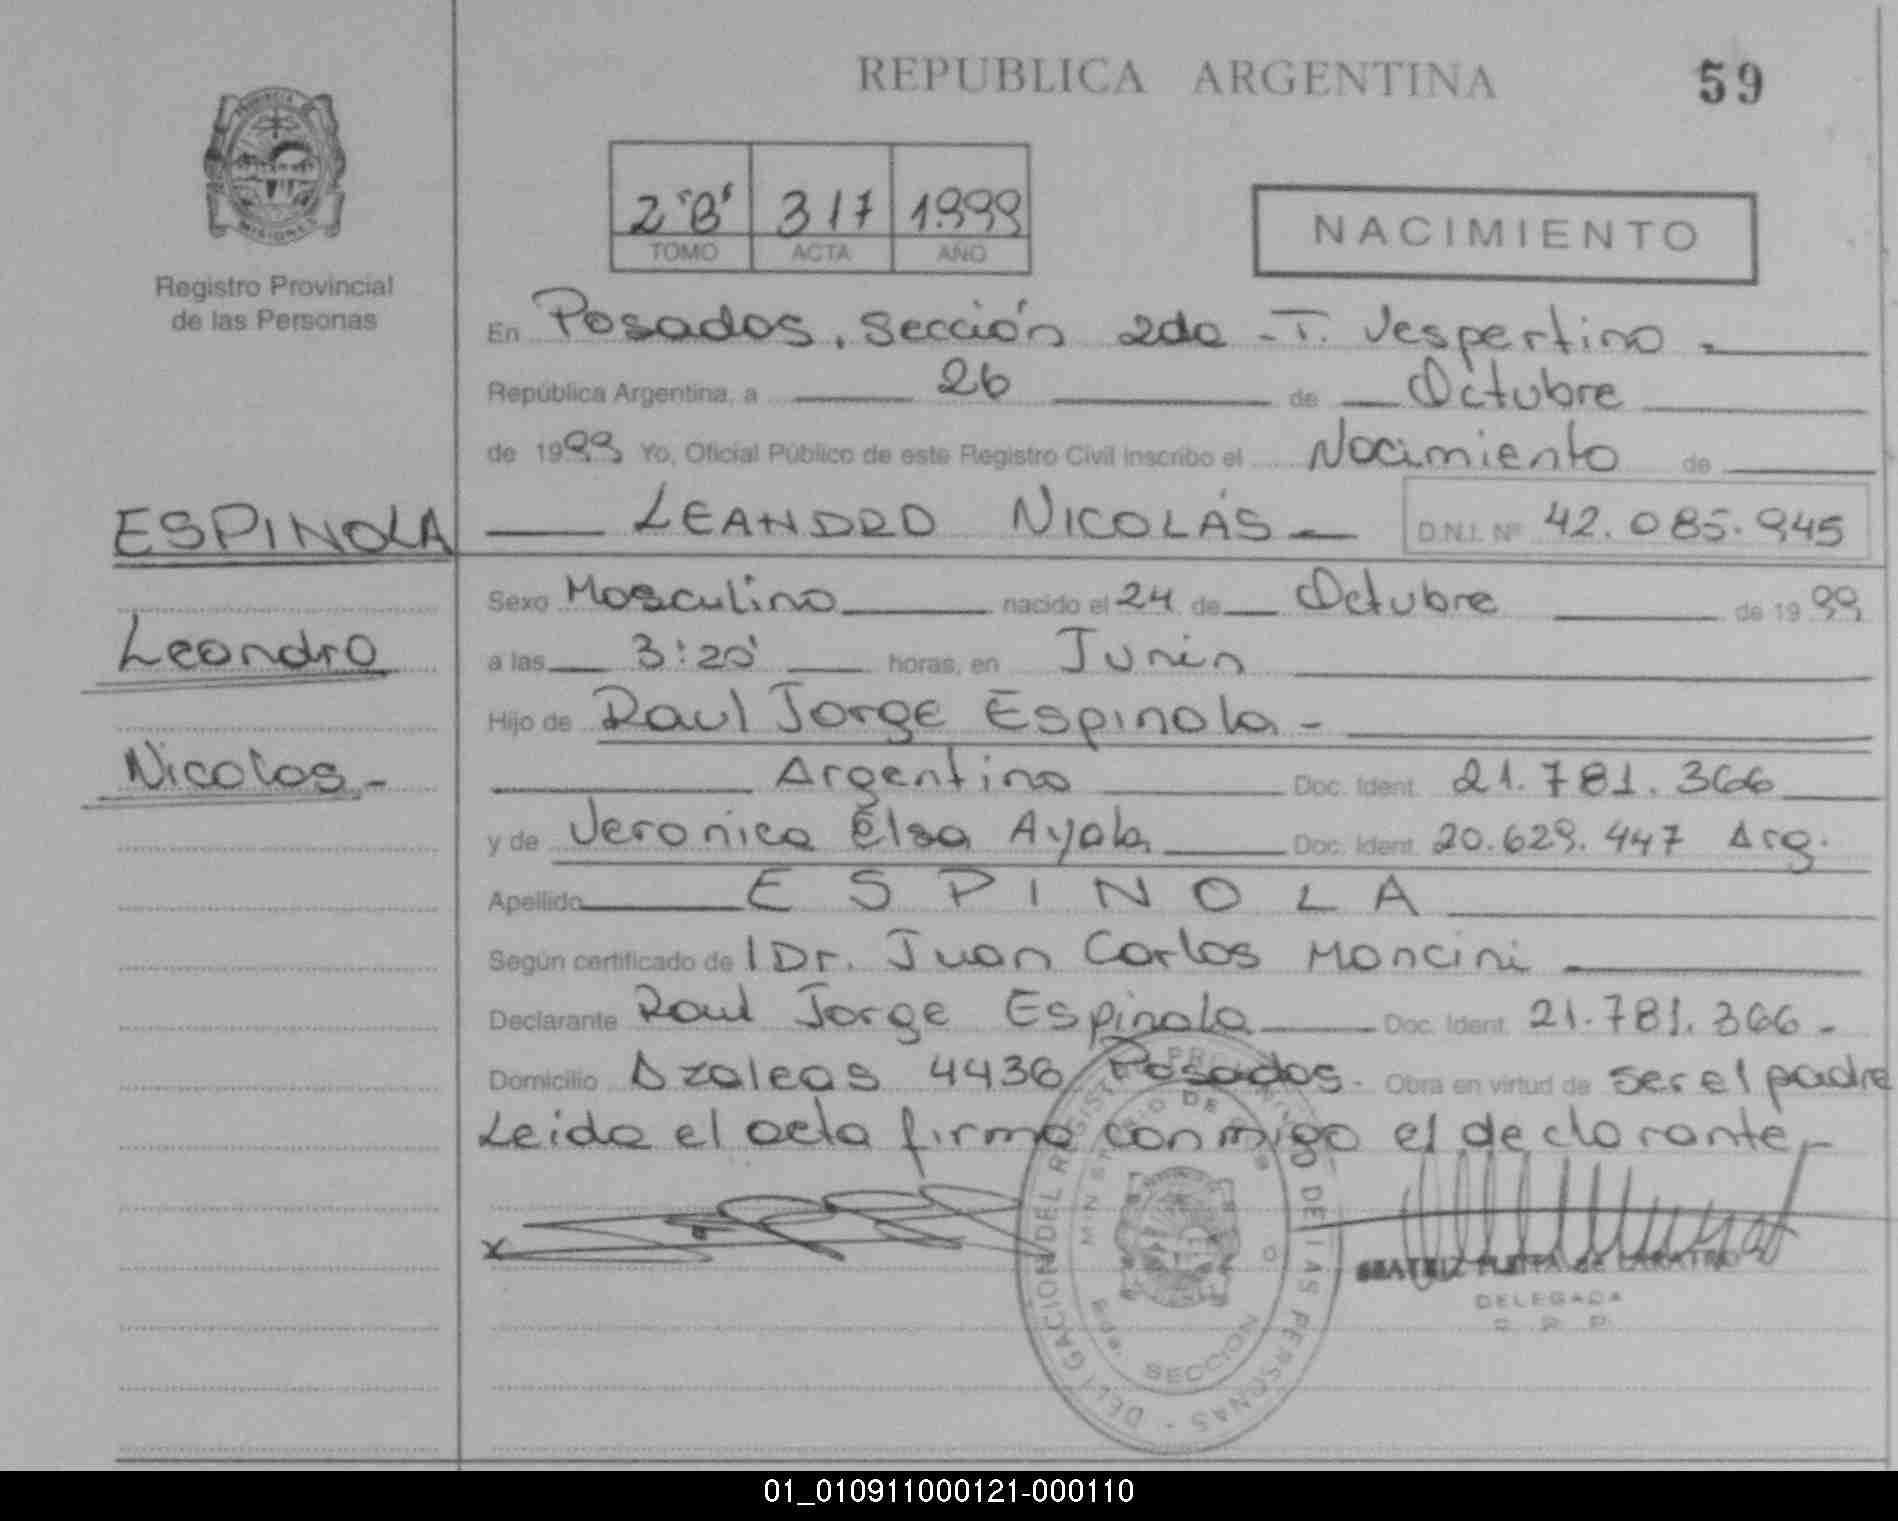 REPUBLICA ARGENTINA 59
PROVINCIA
MISIONES
Registro Provincial
de las Personas
2 "B" 317 1999
TOMO ACTA AÑO
NACIMIENTO
En Posadas, Sección 2da - T. Vespertino.
República Argentina, a 26 de Octubre
de 1999 Yo, Oficial Público de este Registro Civil inscribo el Nacimiento de
ESPINOLA LEANDRO NICOLÁS D.N.I. Nº 42.085.945
Sexo Masculino nacido el 24 de Octubre de 1999
Leandro
a las 3:20' horas, en Junin
Hijo de Raul Jorge Espinola -
Nicolas -
Argentino Doc. Ident. 21.781.366
y de Veronica Elsa Ayala Doc. Ident. 20.629.447 Arg.
Apellido ESPINOLA
Según certificado de l Dr. Juan Carlos Mancini
Declarante Raul Jorge Espinola Doc. Ident. 21.781.366 -
Domicilio Azaleas 4436 Posadas - Obra en virtud de ser el padre
Leida el acta firma conmigo el declarante -
x
DELEGACION DEL REGISTRO PROVINCIAL DE LAS PERSONAS
MINISTERIO DE
SECCION
BEATRIZ de
DELEGADA